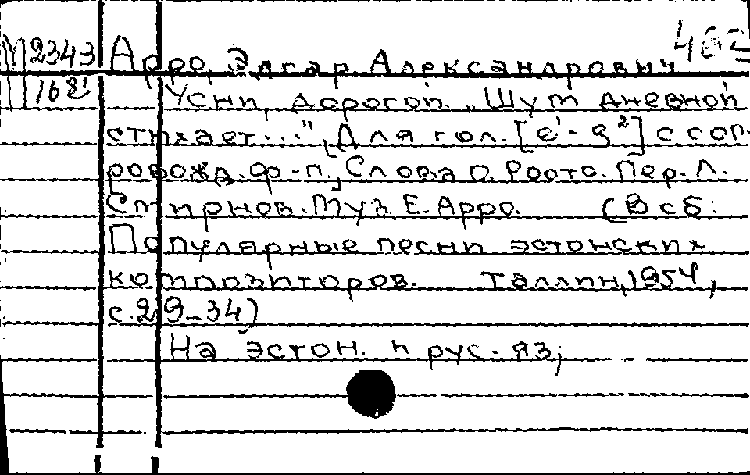 М 2343 Арро, Эдгар Александрович
168 Усни, дорогой „Шум дневной
стихает...", Для гол. [e¹-g²] с соп-
ровожд. ф-п., Слова О. Роото. Пер. Л.
Смирнов. Муз. Е. Арро. (В сб:
Популярные песни эстонских
композиторов. Таллин, 1954,
с. 29-34)
На эстон. и рус. яз;